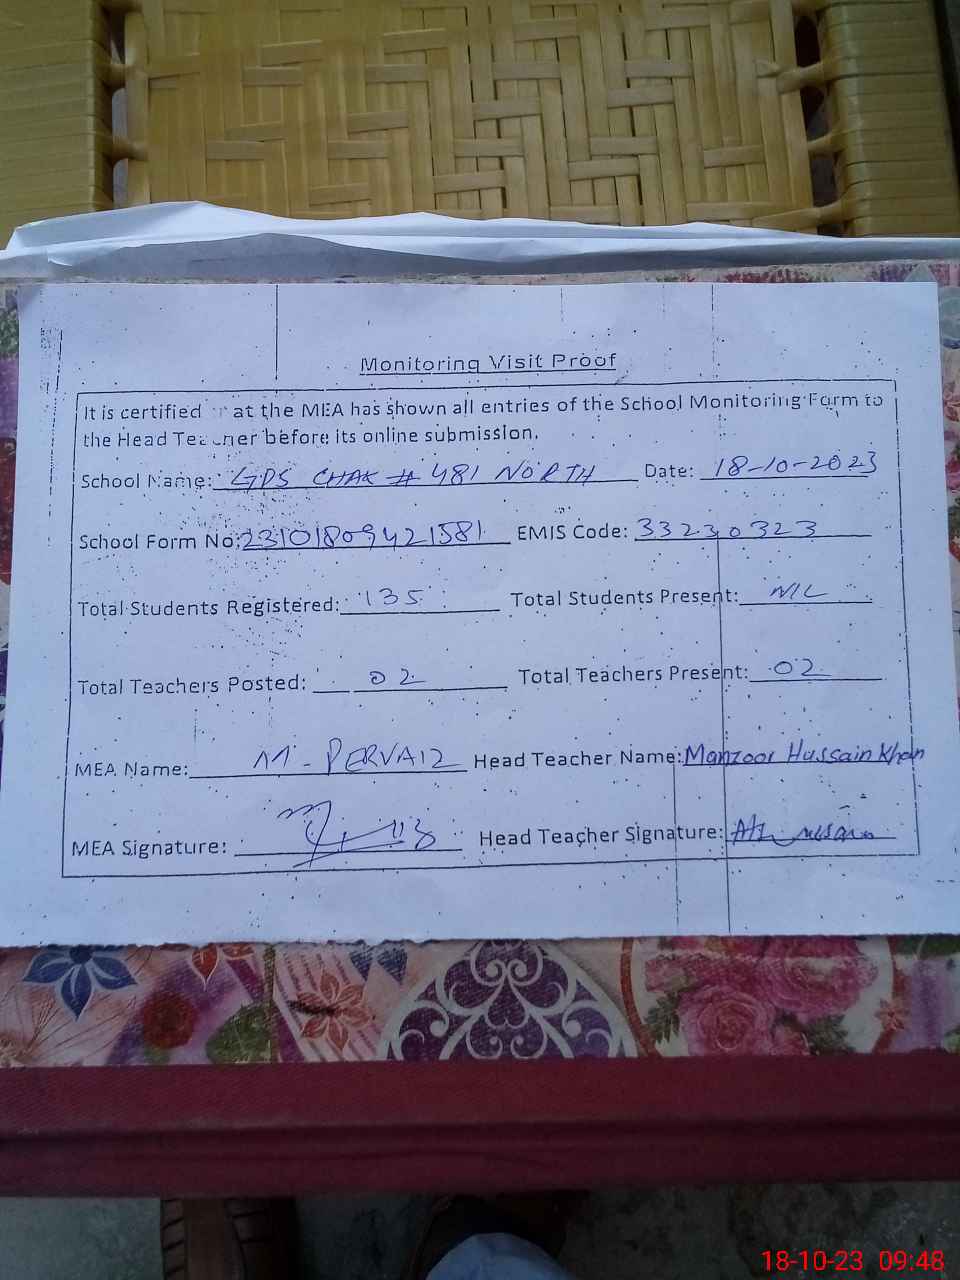 Monitoring Visit Proof
It is certified at the MEA has shown all entries of the School Monitoring Form to
the Head Teacher before its online submission.
School Name: GPS CHAK # 481 NORTH Date: 18-10-2023
School Form No: 2310180942 1581 EMIS Code: 33230323
Total Students Registered: 135 Total Students Present: NIL
Total Teachers Posted: 02 Total Teachers Present: 02
MEA Name: M. PERVAIZ Head Teacher Name: Manzoor Hussain Khan
MEA Signature: Head Teacher Signature:
18-10-23 09:48